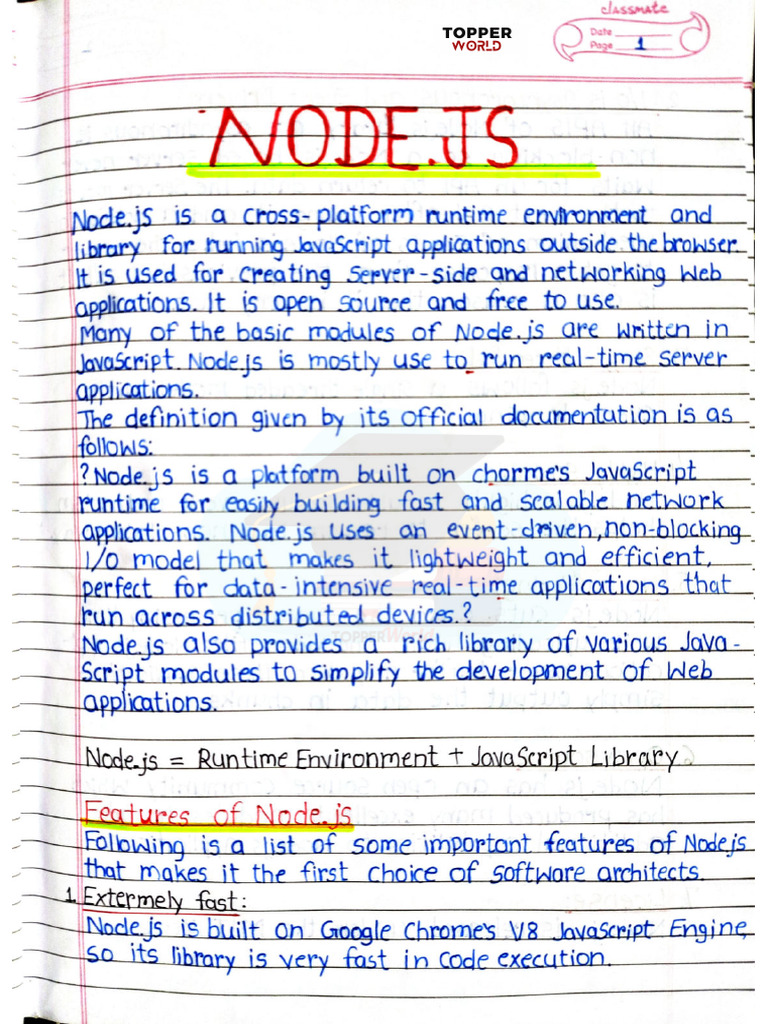 classmate
TOPPER
WORLD
Date
Page 1
NODE.JS
Node.js is a cross-platform runtime environment and
library for running JavaScript applications outside the browser.
It is used for creating server-side and networking web
applications. It is open source and free to use.
Many of the basic modules of Node.js are written in
JavaScript. Node.js is mostly use to run real-time server
applications.
The definition given by its official documentation is as
follows:
?Node.js is a platform built on chorme's JavaScript
runtime for easily building fast and scalable network
applications. Node.js uses an event-driven, non-blocking
I/O model that makes it lightweight and efficient,
perfect for data-intensive real-time applications that
run across distributed devices.?
TOPPERWORLD
Node.js also provides a rich library of various Java-
Script modules to simplify the development of web
applications.
Node.js = Runtime Environment + JavaScript Library
Features of Node.js
Following is a list of some important features of Node.js
that makes it the first choice of software architects.
1. Extermely fast:
Node.js is built on Google Chrome's V8 JavaScript Engine,
so its library is very fast in code execution.